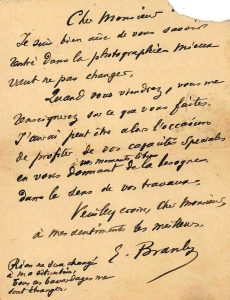 Cher Monsieur
Je suis bien aise de vous savoir
rentré dans la photographie mieux
vaut ne pas changer.
Quand vous viendrez, vous me
renseignerez sur ce que vous faites.
J'aurai peut être alors l'occasion
de profiter de vos capacités spéciales
en vos moments libres
en vous donnant de la besogne
dans le sens de vos travaux.
Veuillez croire, cher Monsieur,
à mes sentiments les meilleurs
E. Branly
Rien ne sera changé
à ma situation,
tous ces bavardages me
sont étrangers.